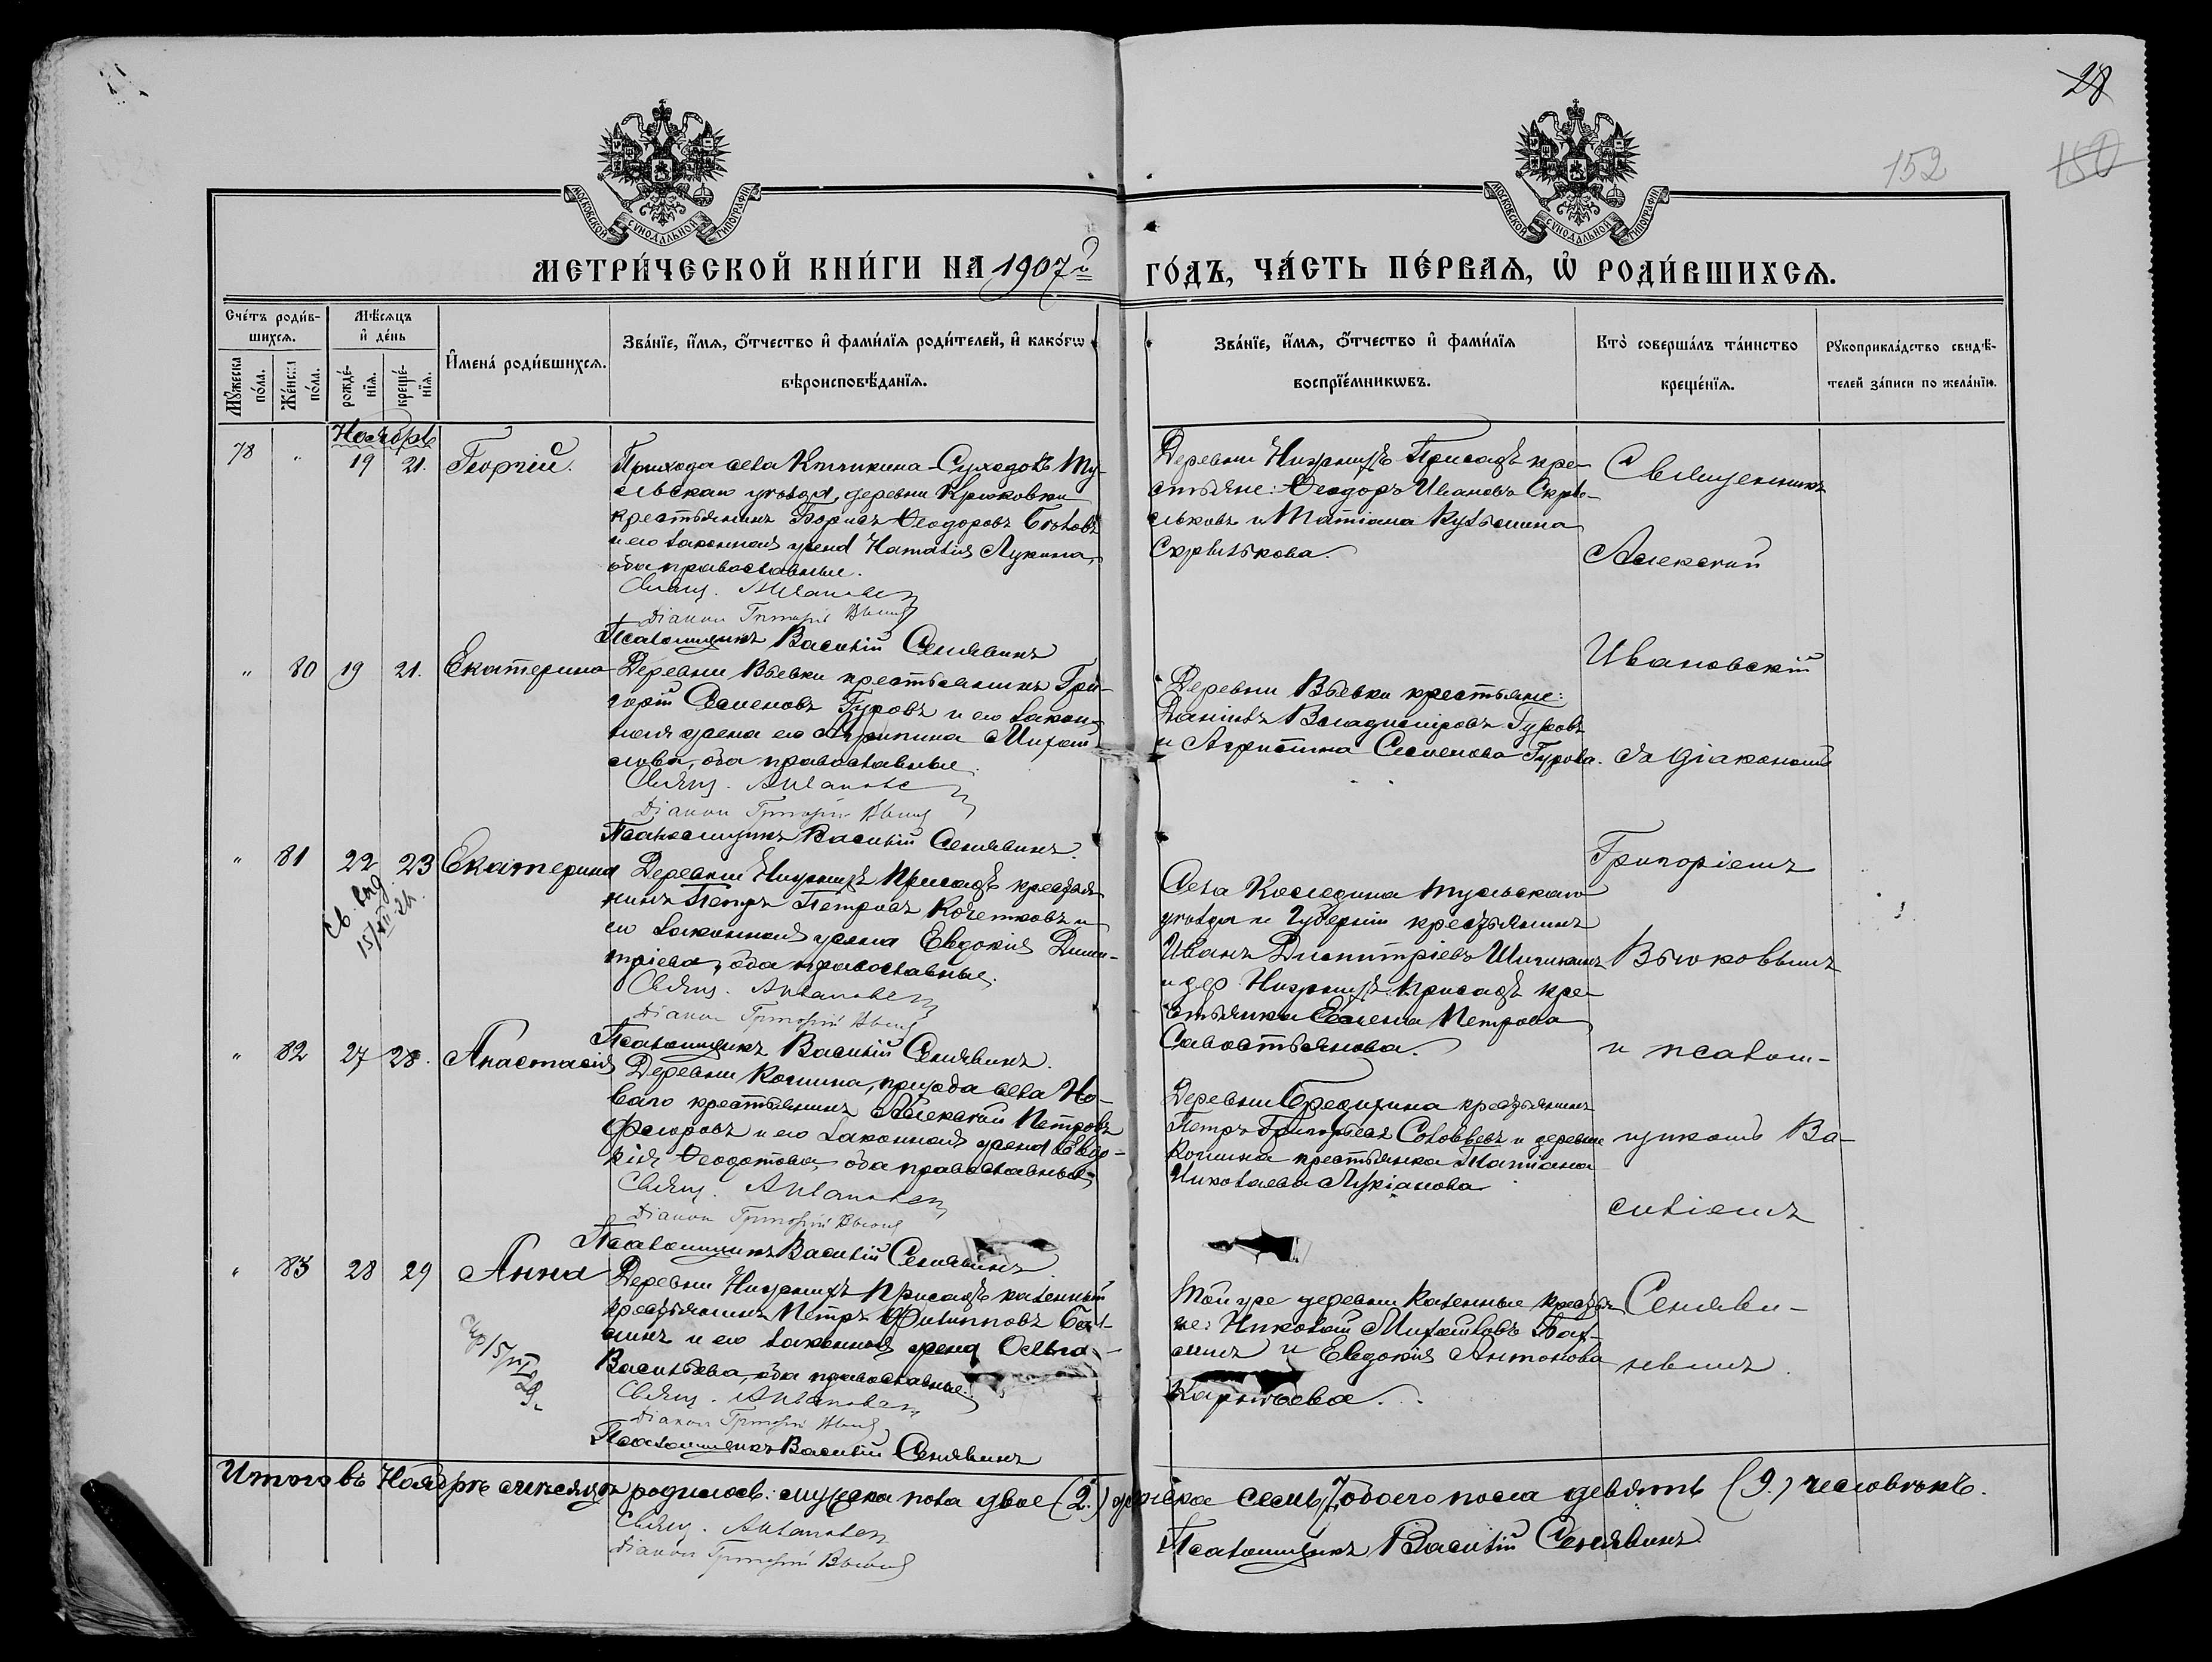 28
152
150
МОСКОВСКОЙ СѴНОДАЛЬНОЙ ТИПОГРАФІИ
МОСКОВСКОЙ СѴНОДАЛЬНОЙ ТИПОГРАФІИ
МЕТРИ́ЧЕСКОЙ КНИ́ГИ НА 1907й
ГО́ДЪ, ЧА́СТЬ ПЕ́РВАѦ, Ѡ҆ РОДИ́ВШИХСѦ.
Сче́тъ роди́в-
шихсѧ.
Мꙋ́жеска по́ла.
Же́нска по́ла.
Мѣ́сѧцъ
и҆ де́нь
рожде́-
нїѧ.
креще́-
нїѧ.
И҆мена̀ роди́вшихсѧ.
Зва́нїе, и҆́мѧ, ѻ҆́тчество и҆ фами́лїѧ роди́телей, и҆ како́гѡ
вѣроисповѣ́данїѧ.
Зва́нїе, и҆́мѧ, ѻ҆́тчество и҆ фами́лїѧ
воспрїе́мникѡвъ.
Кто̀ соверша́лъ та́инство
креще́нїѧ.
Рꙋкоприкла́дство свидѣ́-
телей за́писи по жела́нїю.
Ноябрь
78 " 19 21. Георгій.
Прихода села Кличкина-Суходолъ Ту-
льскаго уѣзда, деревни Крюковки
крестьянинъ Борисъ Ѳеодоровъ Бѣловъ
и его законная жена Наталія Лукина,
оба православные.
Свящ. А Ивановс
Діаконъ Григорій Вьюк
Псаломщикъ Василій Сенявинъ
Деревни Нижнихъ Присадъ кре-
стьяне: Ѳеодоръ Ивановъ Скрѣ-
льковъ и Татіана Кузьмина
Скрѣлькова.
Священникъ
Алексѣй
Ивановскій
" 80 19 21. Екатерина
Деревни Вьевки крестьянинъ Гри-
горій Семеновъ Гуровъ и его закон-
ная жена его Агрипина Михай-
лова, оба православные.
Свящ. А Ивановс
Діаконъ Григорій Вьюк
Псаломщикъ Василій Сенявинъ.
Деревни Вьевки крестьяне:
Даніилъ Владиміровъ Гуровъ
и Агрипина Семенова Гурова.
съ діакономъ
Григоріемъ
" 81 22 23 Екатерина
Св. выд
15/XII 24.
Деревни Нижнихъ Присадъ крестья-
нинъ Петръ Петровъ Кочетковъ и
его законная жена Евдокія Дими-
тріева, оба православные.
Свящ. А Ивановс
Діаконъ Григорій Вьюк
Псаломщикъ Василій Сенявинъ.
Села Коледина Тульскаго
уѣзда и губерніи крестьянинъ
Иванъ Димитріевъ Шичкинъ
и дер. Нижнихъ Присадъ кре-
стьянка Елена Петрова
Савостьянова.
Вьюковымъ
и псалом-
" 82 27 28. Анастасія
Деревни Кошина, прихода села Но-
ваго крестьянинъ Алексѣй Петровъ
Ѳедоровъ и его законная жена Евдо-
кія Ѳеодотова, оба православные.
Свящ. А Ивановс
Діаконъ Григорій Вьюк
Псаломщикъ Василій Сенявинъ.
крестьянинъ
Петръ Григорьевъ Соловьевъ и деревни
Кошина крестьянка Татіана
Николаева Лукіанова
щикомъ Ва-
силіемъ
" 83 28 29 Анна
Деревни Нижнихъ Присадъ казенный
крестьянинъ Петръ Филипповъ
и его законная жена Ольга
Васильева, оба православные.
Свящ. А Ивановс
Діаконъ Григорій Вьюк
Псаломщикъ Василій Сенявинъ
Той же деревни казенные крестья-
не: Николай Михайловъ
и Евдокія Антонова
Карычева.
Сеняви-
нымъ.
Итого въ Ноябрѣ мѣсяцѣ родилось: мужска пола двое (2.) женска семь 7, обоего пола девять (9.) человѣкъ.
Свящ. А Ивановс
Діаконъ Григорій Вьюк
Псаломщикъ Василій Сенявинъ.